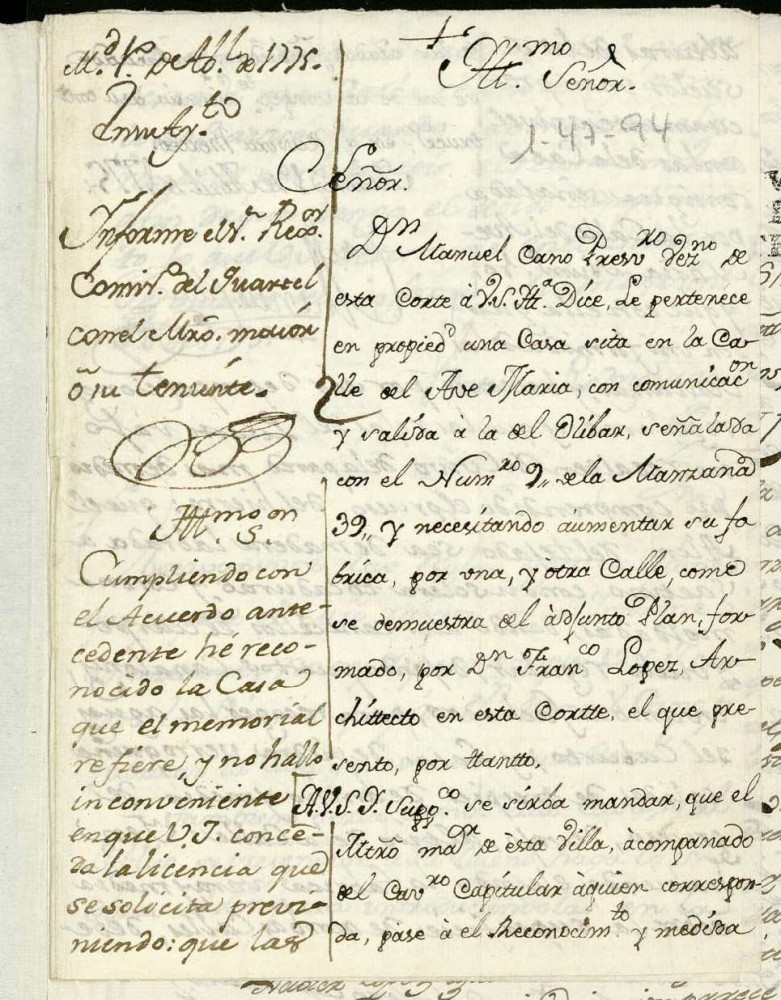 M.d 1.º de Ab.l de 1775.
En su Ay.to
Informe el S.r Rex.or
Comis.o del Quartel
con el Mro. maior
ô su teniente.
Ill.mo S.on
Cumpliendo con
el Acuerdo ante-
cedente hé reco-
nocido la Casa
que el memorial
refiere, y no hallo
inconveniente
en que V.I. conce-
da la licencia que
se solicita previ-
niendo: que las
Ill.mo Señor.
1-47-94
Señor.
Dn Manuel Cano Presv.ro vez.no de
esta Corte à V.S. Ill.a Dice, Le pertenece
en propied.d una Casa sita en la Ca-
lle del Ave Maria, con comunicac.on
y salida à la del Olibar, señalada
con el Num.ro 9,, de la Manzana
39,, y necesitando aumentar su fa
brica, por una, y otra Calle, como
se demuestra del adjunto Plan, for-
mado, por Dn Fran.co Lopez, Ar-
chittecto en esta Cortte, el que pre-
sento, por ttantto.
A.V.S.I. Supp.co se sirba mandar, que el
Mtrô ma.or de esta Villa, àcompanado
del Cav.ro Capitular àquien correspon-
da, pase à el Reconocim.to y medida